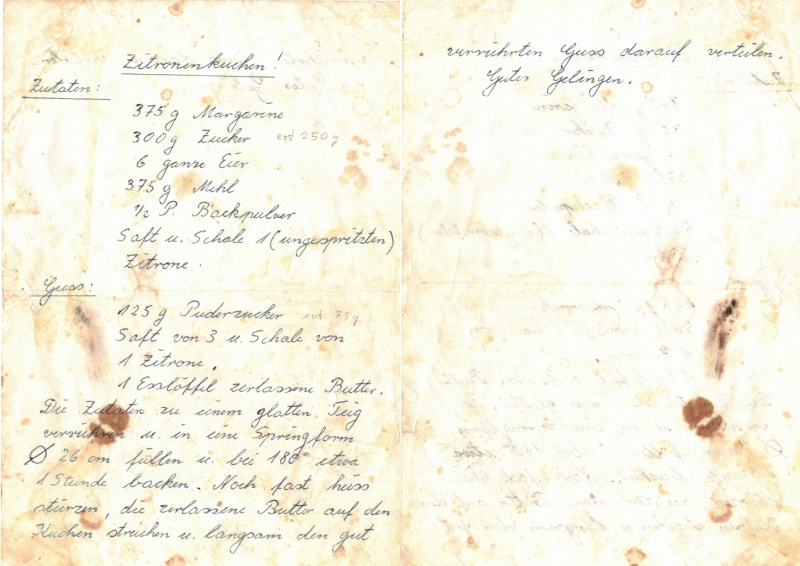 Zitronenkuchen!
Zutaten:
375 g Margarine
300 g Zucker evt 250 g
6 ganze Eier
375 g Mehl
1/2 P. Backpulver
Saft u. Schale 1 (ungespritzten)
Zitrone.
Guss:
125 g Puderzucker evt 75 g
Saft von 3 u. Schale von
1 Zitrone.
1 Esslöffel zerlassene Butter.
Die Zutaten zu einem glatten Teig
verrühren u. in eine Springform
Ø 26 cm füllen u. bei 180° etwa
1 Stunde backen. Noch fast heiss
stürzen, die zerlassene Butter auf den
Kuchen streichen u. langsam den gut
verrührten Guss darauf verteilen.
Gutes Gelingen.